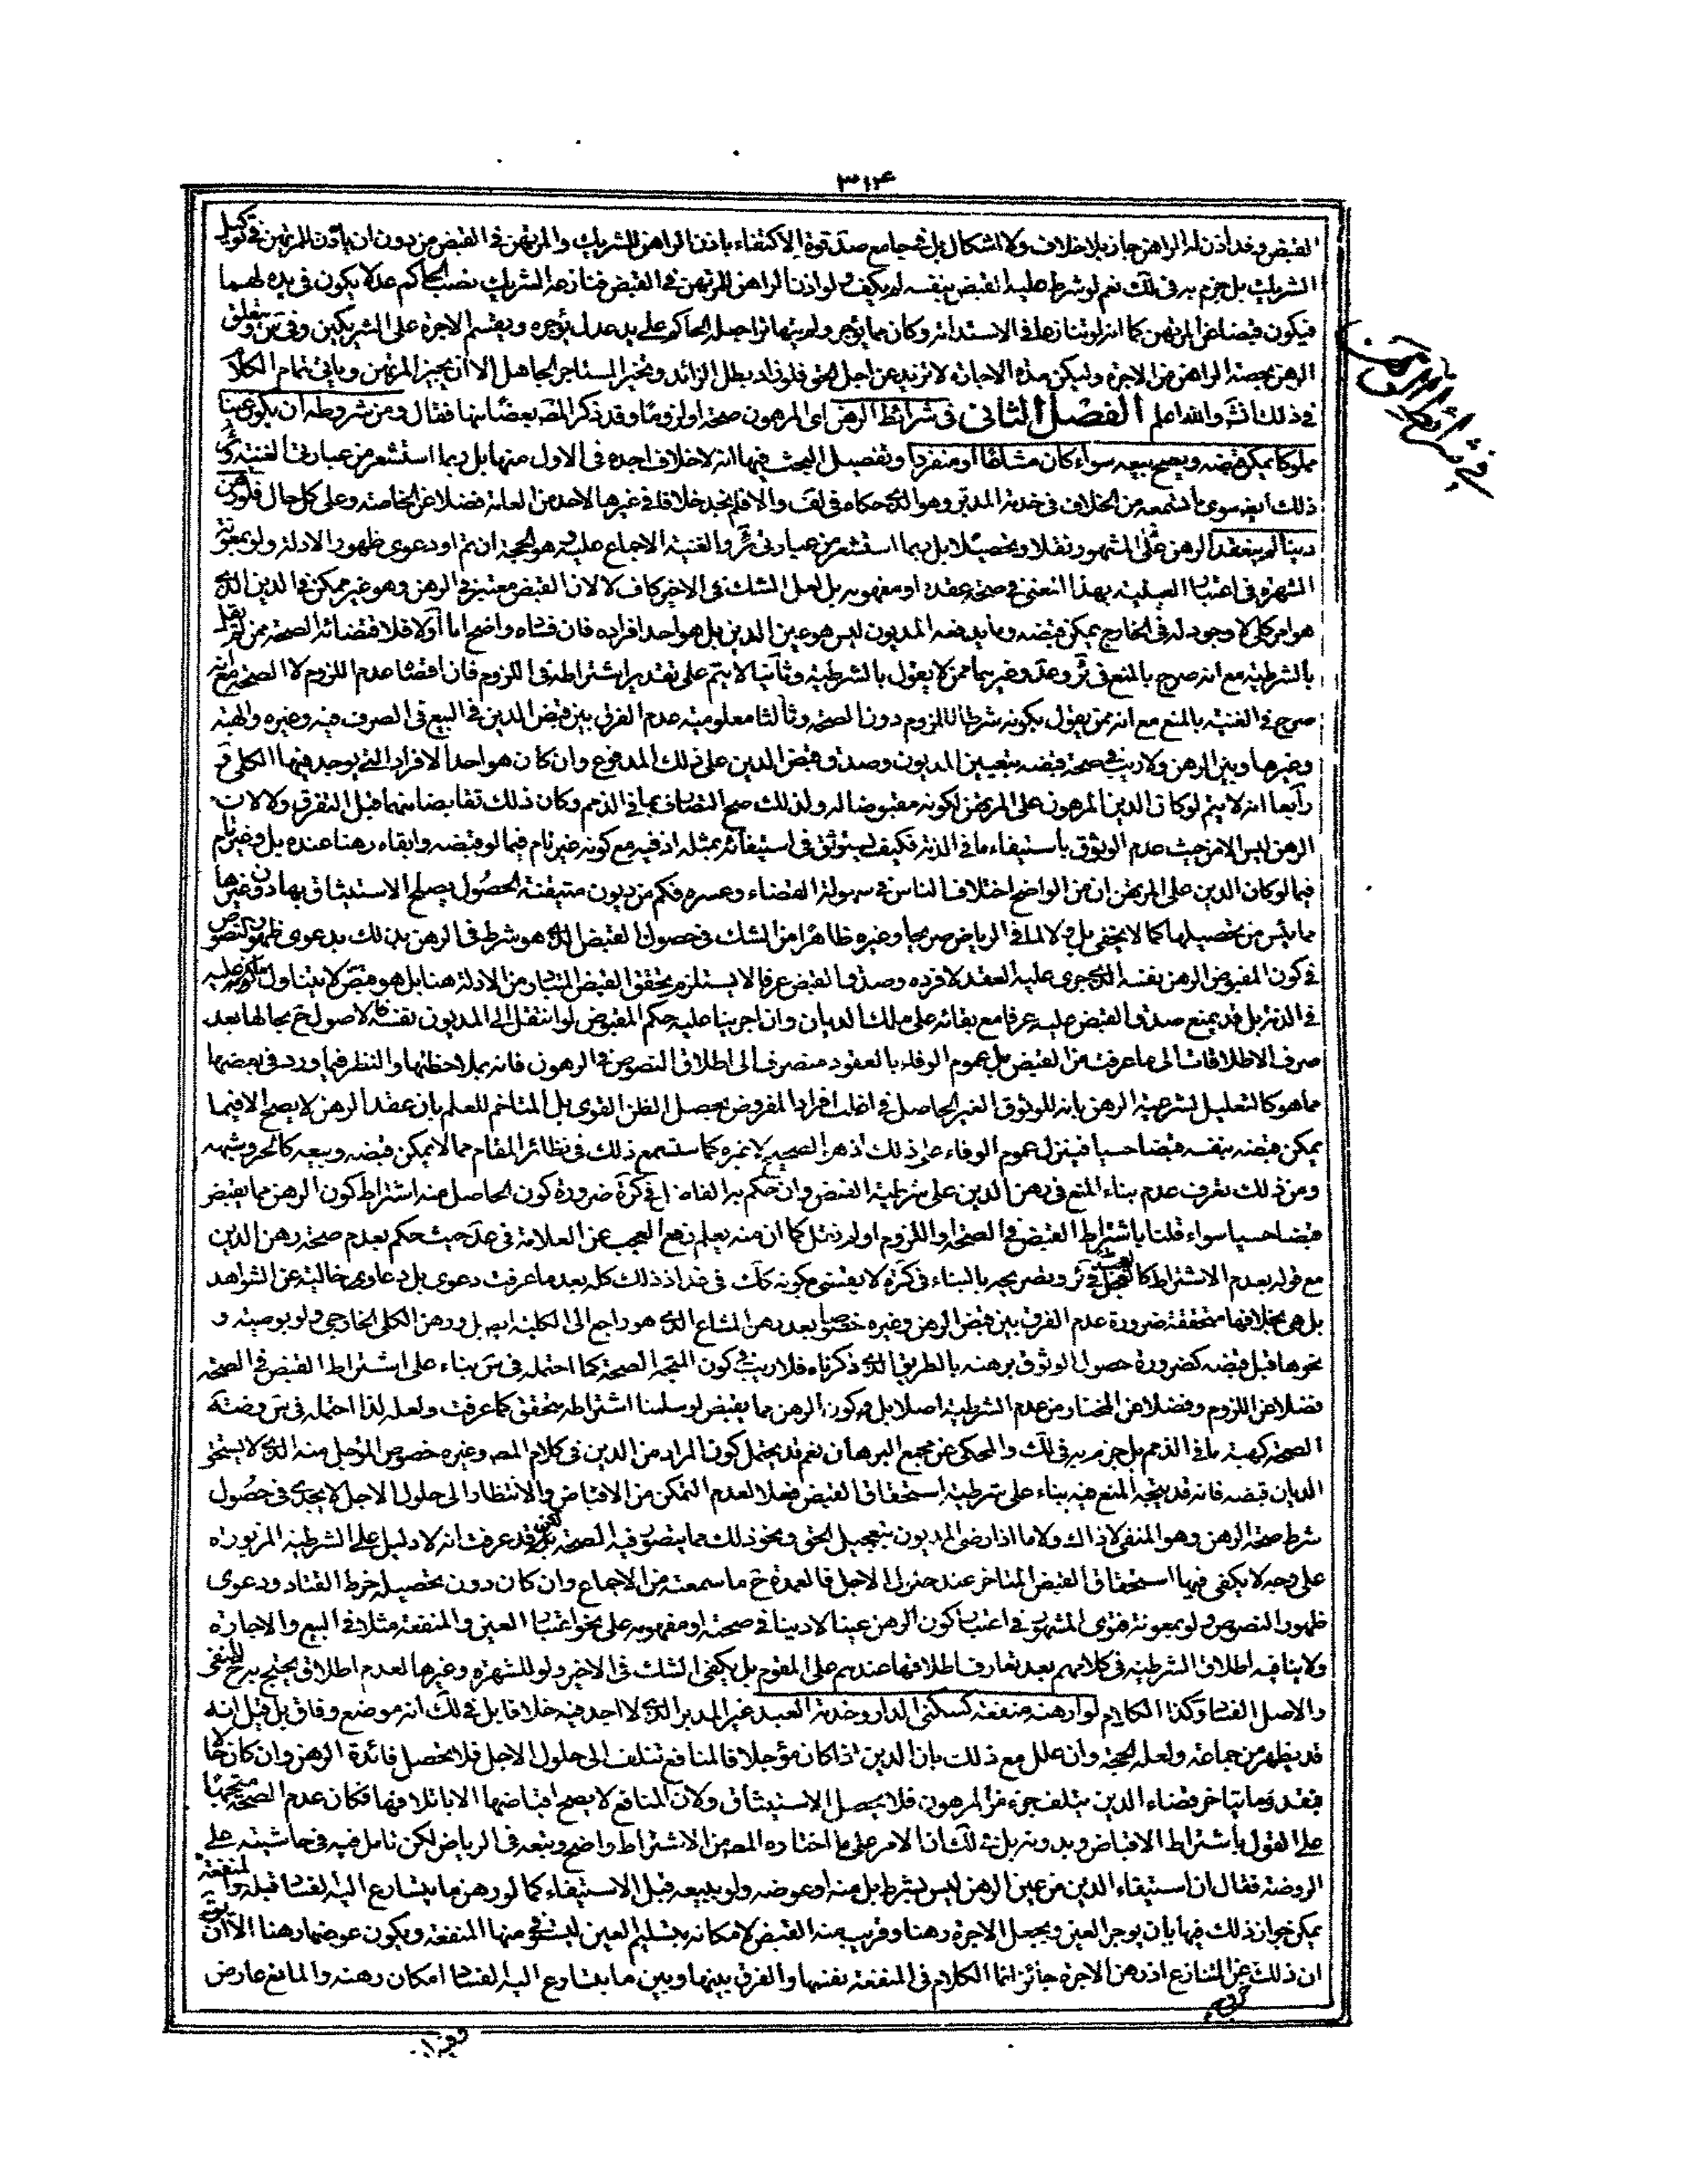 ٣١٤
القبض وقد أذن له الراهن جاز بلا خلاف ولا اشكال بل في جامع صد قوة الاكتفاء باذن الراهن للشريك والمرتهن في القبض من دون ان يأذن للمرتهن في توكيل
الشريك بل جزم به في لك نعم لو شرط عليه القبض بنفسه لم يكف ولو اذن الراهن للمرتهن في القبض فنازعه الشريك نصب الحاكم عدلا يكون في يده لهما
فيكون قبضا عن المرتهن كما انه لو تنازعا في الاستدامة وكان مما يؤجر ولم يتهايا اصله الحاكم على يد عدل يؤجره ويقسم الاجرة على الشريكين وفي س ويتعلق
الرهن بحصة الراهن من الاجرة وليكن مدة الاجارة لا تزيد عن اجل الحق فلو زاد بطل الزائد وتخير المستاجر الجاهل الا ان يجيز المرتهن وياتي تمام الكلام
في ذلك انش والله اعلم الفصل الثاني في شرائط الرهن اى المرهون صحة او لزوما وقد ذكر المص بعضا منها فقال ومن شروطه ان يكون عينا
مملوكا يمكن قبضه ويصح بيعه سواء كان مشاعا او منفردا وتفصيل البحث فيها انه لا خلاف اجده في الاول منها بل ربما استشعر من عبارتي الغنية وئر
ذلك ايض سوى ما تسمعه من الخلاف في خدمة المدبر وهو الذي حكاه في لف والا فلم نجد خلافا في غيرها لاحد من العامة فضلا عن الخاصة وعلى كل حال فلو رهن
دينا لم ينعقد الرهن على المشهور نقلا وتحصيلا بل ربما استشعر من عبارتي ئر والغنية الاجماع عليه وهو الحجة ان تم او دعوى ظهور الادلة ولو بمعونة
الشهرة في اعتبار العينية بهذا المعنى في صحة عقده او مفهومه بل لعل الشك في الاخير كاف لا لان القبض معتبر في الرهن وهو غير ممكن في الدين الذي
هو امر كلى لا وجود له في الخارج يمكن قبضه وما يدفعه المديون ليس هو عين الدين بل هو احد افراده فان فساده واضح اما اولا فلاقتضائه الصحة ممن لم يقل
بالشرطية مع انه صرح بالمنع في ئر وعد وغيرهما ممن لا يقول بالشرطية وثانيا لا يتم على تقدير اشتراطه في اللزوم فان اقصاه عدم اللزوم لا الصحة مع انه
صرح في الغنية بالمنع مع انه ممن يقول بكونه شرطا للزوم دون الصحة وثالثا معلومية عدم الفرق بين قبض الدين في البيع في الصرف فيه وغيره والهبة
وغيرها وبين الرهن ولا ريب في صحة قبضه بتعيين المديون وصدق قبض الدين على ذلك المدفوع وان كان هو احد الافراد التي يوجد فيها الكلي و
رابعا انه لا يتم لو كان الدين المرهون على المرتهن لكونه مقبوضا له ولذلك صح التصارف بما في الذمم وكان ذلك تقابضا منهما قبل التفرق ولا لان
الرهن ليس الا من حيث عدم الوثوق باستيفاء ما في الذمة فكيف يستوثق في استيفائه بمثله اذ فيه مع كونه غير تام فيما لو قبضه وابقاه رهنا عنده بل وغير تام
فيما لو كان الدين على المرتهن ان من الواضح اختلاف الناس في سهولة القضاء وعسره فكم من ديون متيقنة الحصول يصلح الاستيثاق بها دون غيرها
مما يئس من تحصيلها كما لا يخفى بل لا لما في الرياض صريحا وغيره ظاهرا من الشك في حصول القبض الذي هو شرط في الرهن بذلك بدعوى ظهور النصوص
في كون المقبوض الرهن بنفسه الذي جرى عليه العقد لا فرده وصدق القبض عرفا لا يستلزم تحقق القبض المتبادر من الادلة هنا بل هو مقص لا يتناول
في الذمة بل قد يمنع صدق القبض عليه عرفا مع بقائه على ملك الديان وان اجرينا عليه حكم المقبوض لو انتقل الى المديون نفسه فالاصول ح بحالها بعد
صرف الاطلاقات الى ما عرفت من القبض بل عموم الوفاء بالعقود منصرف الى اطلاق النصوص في الرهون فانه بملاحظتها والنظر فيما ورد في بعضها
مما هو كالتعليل لشرعية الرهن بانه للوثوق الغير الحاصل في اغلب افراد المفروض يحصل الظن القوى بل المتاخم للعلم بان عقد الرهن لا يصح الا فيما
يمكن قبضه بنفسه قبضا حسيا فينزل عموم الوفاء على ذلك اذ هو الصحيح لا غيره كما ستسمع ذلك في نظائر المقام مما لا يمكن قبضه وبيعه كالحر وشبهه
ومن ذلك تعرف عدم بناء المنع في رهن الدين على شرطية القبض وان حكم به الفاضل في كرة ضرورة كون الحاصل منه اشتراط كون الرهن مما يقبض
قبضا حسيا سواء قلنا باشتراط القبض في الصحة او اللزوم او لم نقل كما ان منه يعلم دفع العجب عن العلامة في عد حيث حكم بعدم صحة رهن الدين
مع قوله بعدم الاشتراط كا في ئر وتصريحه بالبناء في كرة لا يقتضى كونه كك في عد اذ ذلك كله بعد ما عرفت دعوى بل دعاوى خالية عن الشواهد
بل هي بخلافها متحققة ضرورة عدم الفرق بين قبض الرهن وغيره خصوصا بعد رهن المشاع الذي هو راجع الى الكلية ايض بل ورهن الكلى الخارجي ولو بوصية و
نحوها قبل قبضه كضرورة حصول الوثوق برهنه بالطريق الذي ذكرناه فلا ريب في كون المتجه الصحة كما احتمله في س بناء على اشتراط القبض في الصحة
فضلا عن اللزوم وفضلا عن المختار من عدم الشرطية اصلا بل وكون الرهن مما يقبض لو سلمنا اشتراطه متحقق كما عرفت ولعله لذا احتمله في س وضة
الصحة كهبة ما في الذمم بل جزم به في لك والمحكى عن مجمع البرهان نعم قد يحتمل كون المراد من الدين في كلام المص وغيره خصوص المؤجل منه الذي لا يستحق
الديان قبضه فانه قد يتجه المنع فيه بناء على شرطية استحقاق القبض فعلا لعدم التمكن من الاقباض والانتظار الى حلول الاجل لا يجدي في حصول
شرط صحة الرهن وهو المنفي لا ذاك ولا ما اذا رضي المديون بتعجيل الحق ونحو ذلك مما يتصور فيه الصحة لكن قد عرفت انه لا دليل على الشرطية المزبورة
على وجه لا يكفى فيها استحقاق القبض المتاخر عند حلول الاجل فالعمدة ح ما سمعته من الاجماع وان كان دون تحصيله خرط القتاد ودعوى
ظهور النصوص ولو بمعونة فتوى المشهور في اعتبار كون الرهن عينا لا دينا في صحته او مفهومه على نحو اعتبار العين والمنفعة مثلا في البيع والاجارة
ولا ينافيه اطلاق الشرطية في كلامهم بعد تعارف اطلاقها عندهم على المقوم بل يكفى الشك في الاخير ولو للشهرة وغيرها لعدم اطلاق يحتج به ح للنفى
والاصل الفساد وكذا الكلام لو رهنه منفعة كسكنى الدار وخدمة العبد غير المدبر الذي لا اجد فيه خلافا بل في لك انه موضع وفاق بل قيل انه
قد يظهر من جماعة ولعله الحجة وان علل مع ذلك بان الدين اذا كان مؤجلا فالمنافع تتلف الى حلول الاجل فلا يحصل فائدة الرهن وان كان حالا
فبقدر ما يتاخر قضاء الدين يتلف جزء من المرهون فلا يحصل الاستيثاق ولان المنافع لا يصح اقباضها الا باتلافها فكان عدم الصحة متجها
على القول باشتراط الاقباض وبدونه بل في لك ان الامر على ما اختاره المص من الاشتراط واضح وتبعه في الرياض لكن تامل فيه في حاشيته على
الروضة فقال ان استيفاء الدين من عين الرهن ليس بشرط بل منه او عوضه ولو ببيعه قبل الاستيفاء كما لو رهن ما يتسارع اليه الفساد قبله والمنفعة
يمكن جواز ذلك فيها بان يوجر العين ويجعل الاجرة رهنا وقريب منه القبض لامكانه بتسليم العين ليستوفى منها المنفعة ويكون عوضها رهنا الا ان يق
ان ذلك عن المتنازع اذ رهن الاجرة جائز انما الكلام في المنفعة نفسها والفرق بينها وبين ما يتسارع اليه الفساد امكان رهنه والمانع عارض
خروج
في شرائط الرهن